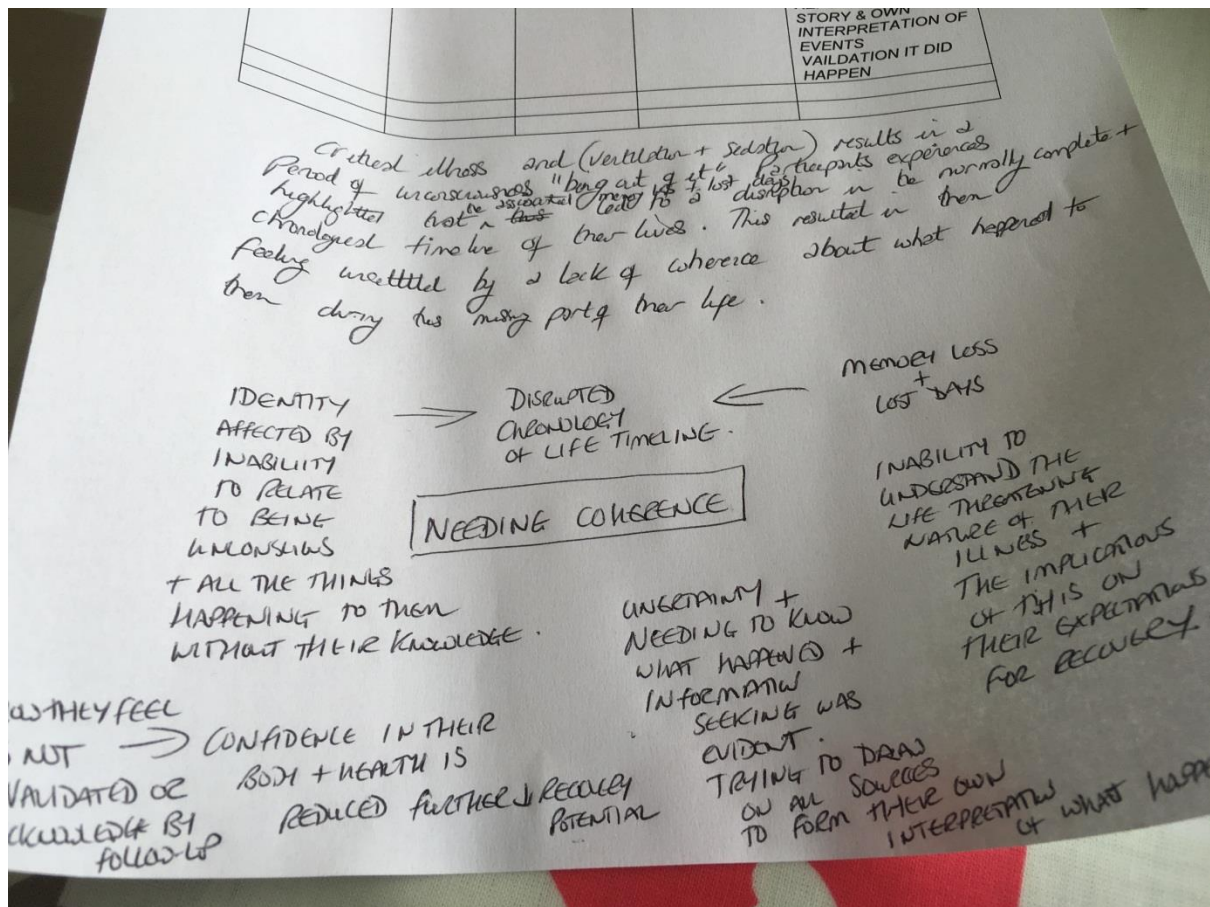 STORY & OWN
INTERPRETATION OF
EVENTS
VAILDATION IT DID
HAPPEN
Critical illness and (ventilation + sedation) results in a
Period of unconsciousness "being out of it" Participants experiences
highlighted that the associated memory loss + lost days
lead to a disruption in the normally complete +
chronological timeline of their lives. This resulted in them
feeling unsettled by a lack of coherence about what happened to
them during this missing part of their life.
IDENTITY
AFFECTED BY
INABILITY
TO RELATE
TO BEING
UNCONSCIOUS
+ ALL THE THINGS
HAPPENING TO THEM
WITHOUT THEIR KNOWLEDGE.
→ DISRUPTED
CHRONOLOGY
OF LIFE TIMELINE.
← MEMORY LOSS
+
LOST DAYS
NEEDING COHERENCE
INABILITY TO
UNDERSTAND THE
LIFE THREATENING
NATURE OF THEIR
ILLNESS +
THE IMPLICATIONS
OF THIS ON
THEIR EXPECTATIONS
FOR RECOVERY.
UNCERTAINTY +
NEEDING TO KNOW
WHAT HAPPENED +
INFORMATION
SEEKING WAS
EVIDENT.
TRYING TO DRAW
ON ALL SOURCES
TO FORM THEIR OWN
INTERPRETATION
OF WHAT HAPPE
THEY FEEL
NOT
VALIDATED OR
BY
FOLLOW-UP
→ CONFIDENCE IN THEIR
BODY + HEALTH IS
REDUCED FURTHER ↓ RECOVERY
POTENTIAL